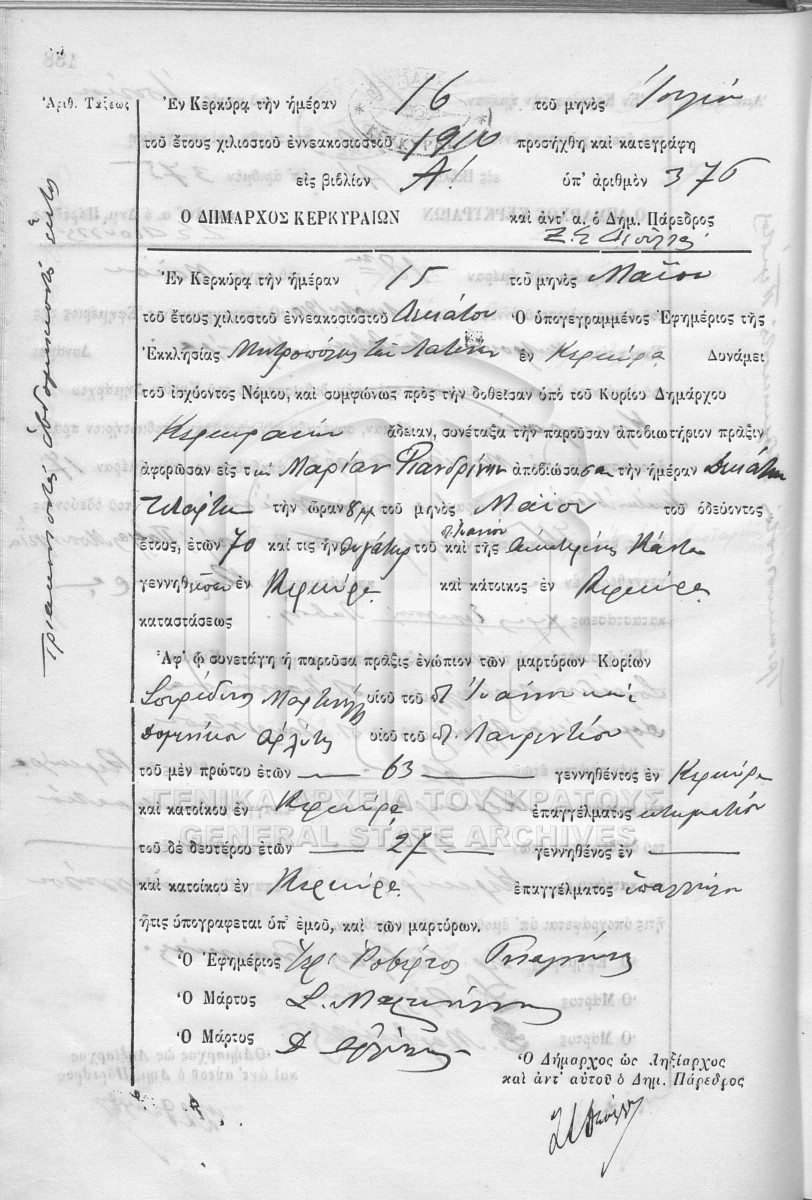 Ἀριθ. Τάξεως
Τριακοσιοστὴ ἑβδομηκοστὴ ἕκτη
Ἐν Κερκύρᾳ τὴν ἡμέραν 16 τοῦ μηνὸς Ἰουλίου
τοῦ ἔτους χιλιοστοῦ ἐννεακοσιοστοῦ 1910 προσήχθη καὶ κατεγράφη
εἰς βιβλίον Α! ὑπ' ἀριθμὸν 376
Ο ΔΗΜΑΡΧΟΣ ΚΕΡΚΥΡΑΙΩΝ καὶ ἀντ' α. ὁ Δημ. Πάρεδρος
Ἐν Κερκύρᾳ τὴν ἡμέραν 15 τοῦ μηνὸς Μαΐου
τοῦ ἔτους χιλιοστοῦ ἐννεακοσιοστοῦ Δεκάτου Ὁ ὑπογεγραμμένος Ἐφημέριος τῆς
Ἐκκλησίας Μητροπόλεως τῶν Λατίνων ἐν Κερκύρᾳ Δυνάμει
τοῦ ἰσχύοντος Νόμου, καὶ συμφώνως πρὸς τὴν δοθεῖσαν ὑπὸ τοῦ Κυρίου Δημάρχου
Κερκυραίων ἄδειαν, συνέταξα τὴν παροῦσαν ἀποβιωτήριον πρᾶξιν
ἀφορῶσαν εἰς τὴν Μαρίαν ἀποβιώσασα τὴν ἡμέραν Δεκάτην
Τετάρτην τὴν ὥραν 8 μμ τοῦ μηνὸς Μαΐου τοῦ ὁδεύοντος
ἔτους, ἐτῶν 70 καί τις ἦν θυγάτηρ τοῦ π. Ἰωάννου καὶ τῆς Αἰκατερίνης
γεννηθεῖσα ἐν Κερκύρᾳ καὶ κάτοικος ἐν Κερκύρᾳ
καταστάσεως
Ἀφ' ᾧ συνετάγη ἡ παροῦσα πρᾶξις ἐνώπιον τῶν μαρτύρων Κυρίων
Σπυρίδωνος Μαρτινέλλη υἱοῦ τοῦ π. Ἰωάννου καὶ
Δομηνίκου υἱοῦ τοῦ π. Λαυρεντίου
τοῦ μὲν πρώτου ἐτῶν 63 γεννηθέντος ἐν Κερκύρᾳ
καὶ κατοίκου ἐν Κερκύρᾳ ἐπαγγέλματος κτηματίου
ΓΕΝΙΚΑ ΑΡΧΕΙΑ ΤΟΥ ΚΡΑΤΟΥΣ
GENERAL STATE ARCHIVES
τοῦ δὲ δευτέρου ἐτῶν 27 γεννηθένος ἐν
καὶ κατοίκου ἐν Κερκύρᾳ ἐπαγγέλματος ὑπαλλήλου
ἥτις ὑπογραφεται ὑπ' ἐμοῦ, καὶ τῶν μαρτύρων.
Ὁ Ἐφημέριος Ροβέρτος
Ὁ Μάρτυς Σ. Μαρτινέλλης
Ὁ Μάρτυς Δ
Ὁ Δήμαρχος ὡς Ληξίαρχος
καὶ ἀντ' αὐτοῦ ὁ Δημ. Πάρεδρος